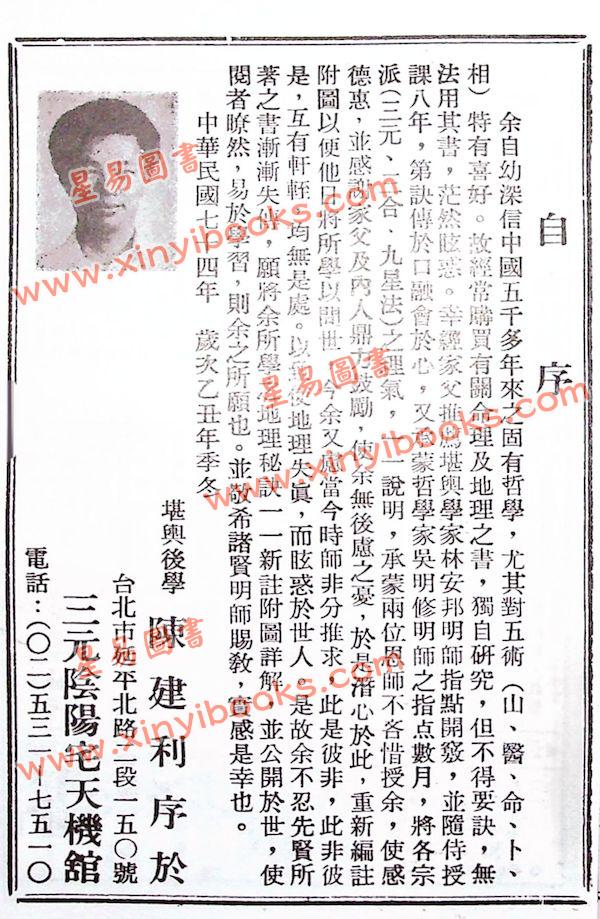 自序
余自幼深信中國五千多年來之固有哲學，尤其對五術（山、醫、命、卜、
相）特有喜好。故經常購買有關命理及地理之書，獨自研究，但不得要訣，無
法用其書，茫然眩惑。幸經家父推薦堪輿學家林安邦明師指點開竅，並隨侍授
課八年，第訣傳於口融會於心，又承蒙哲學家吳明修明師之指点數月，將各宗
派（三元、三合、九星法）之理氣，一一說明，承蒙兩位恩師不吝惜授余，使感
德惠，並感謝家父及內人鼎力鼓勵，使余無後慮之憂，於是潛心於此，重新編註
附圖以便他日將所學以問世。今余又慮當今時師非分推求，此是彼非，此非彼
是，互有軒輊，均無是處。以使地理失眞，而眩惑於世人。是故余不忍先賢所
著之書漸漸失傳，願將余所學之地理秘訣一一新註附圖詳解，並公開於世，使
閱者瞭然，易於學習，則余之所願也。並敬希諸賢明師賜教，實感是幸也。
中華民國七十四年　歲次乙丑年季冬
堪輿後學　陳建利序於
台北市延平北路二段一五〇號
三元陰陽宅天機舘
電話：（〇二）五三一－七五一〇
星易圖書
www.xinyibooks.com
星易圖書
www.xinyibooks.com
www.xinyibooks.com
星易圖書
www.xinyibooks.com